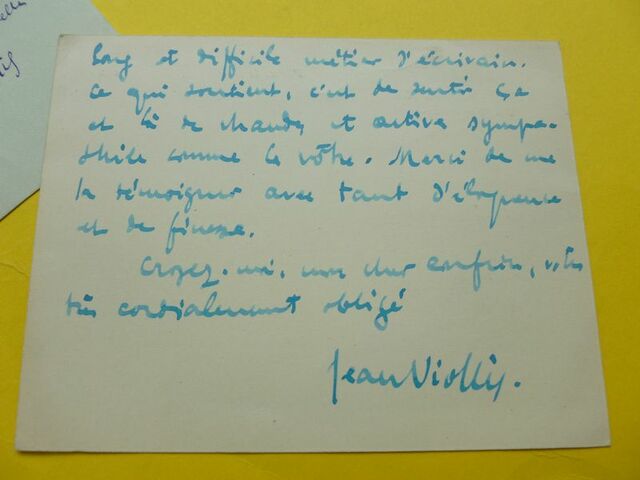 elle
long et difficile métier d'écrivain.
Ce qui soutient, c'est de sentir çà
et là de chaudes et actives sympa-
thies comme la vôtre. Merci de me
la témoigner avec tant d'éloquence
et de finesse.
Croyez-moi, mon cher confrère, votre
très cordialement obligé
Jean Viollis.